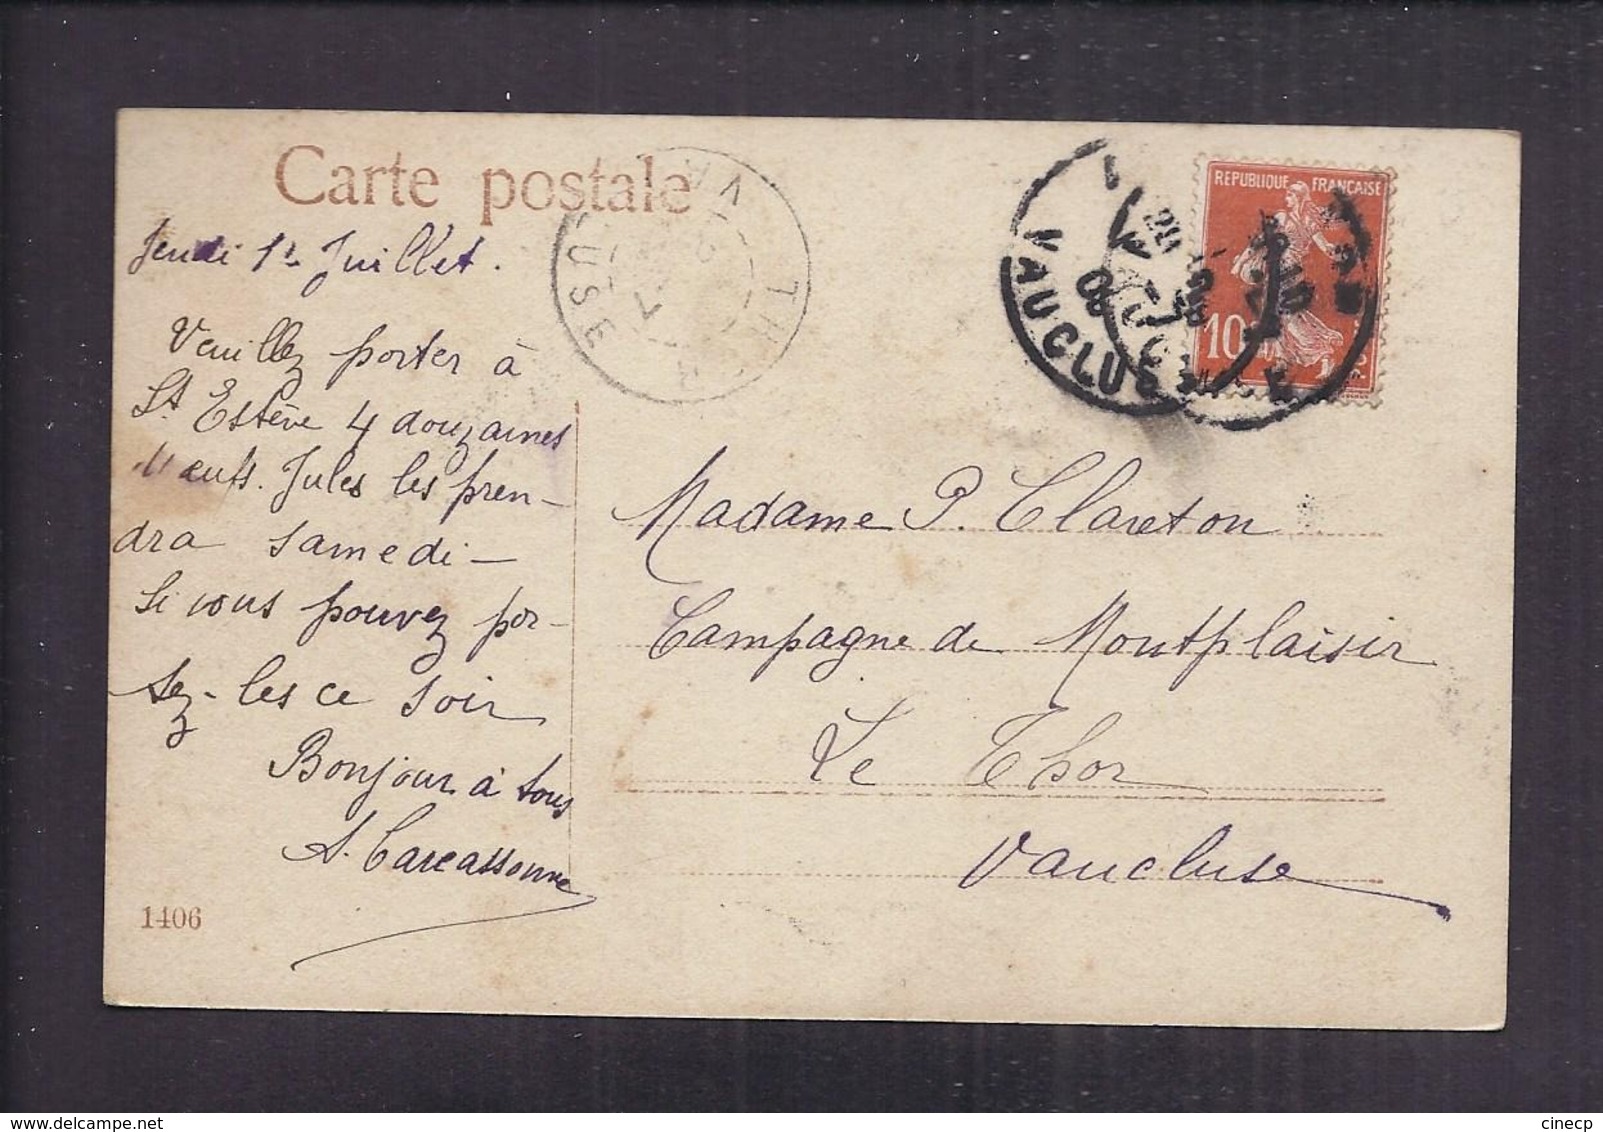 Carte postale
Jeudi 1er Juillet.
Veuillez porter à
St Estève 4 douzaines
d'œufs. Jules les pren-
dra samedi —
Si vous pouvez por-
tez-les ce soir
Bonjour à tous
A. Carcassonne
1406
REPUBLIQUE FRANÇAISE
10
VAUCLUSE
Madame P. Clareton
Campagne de Montplaisir
Le Thor
Vaucluse
cinecp